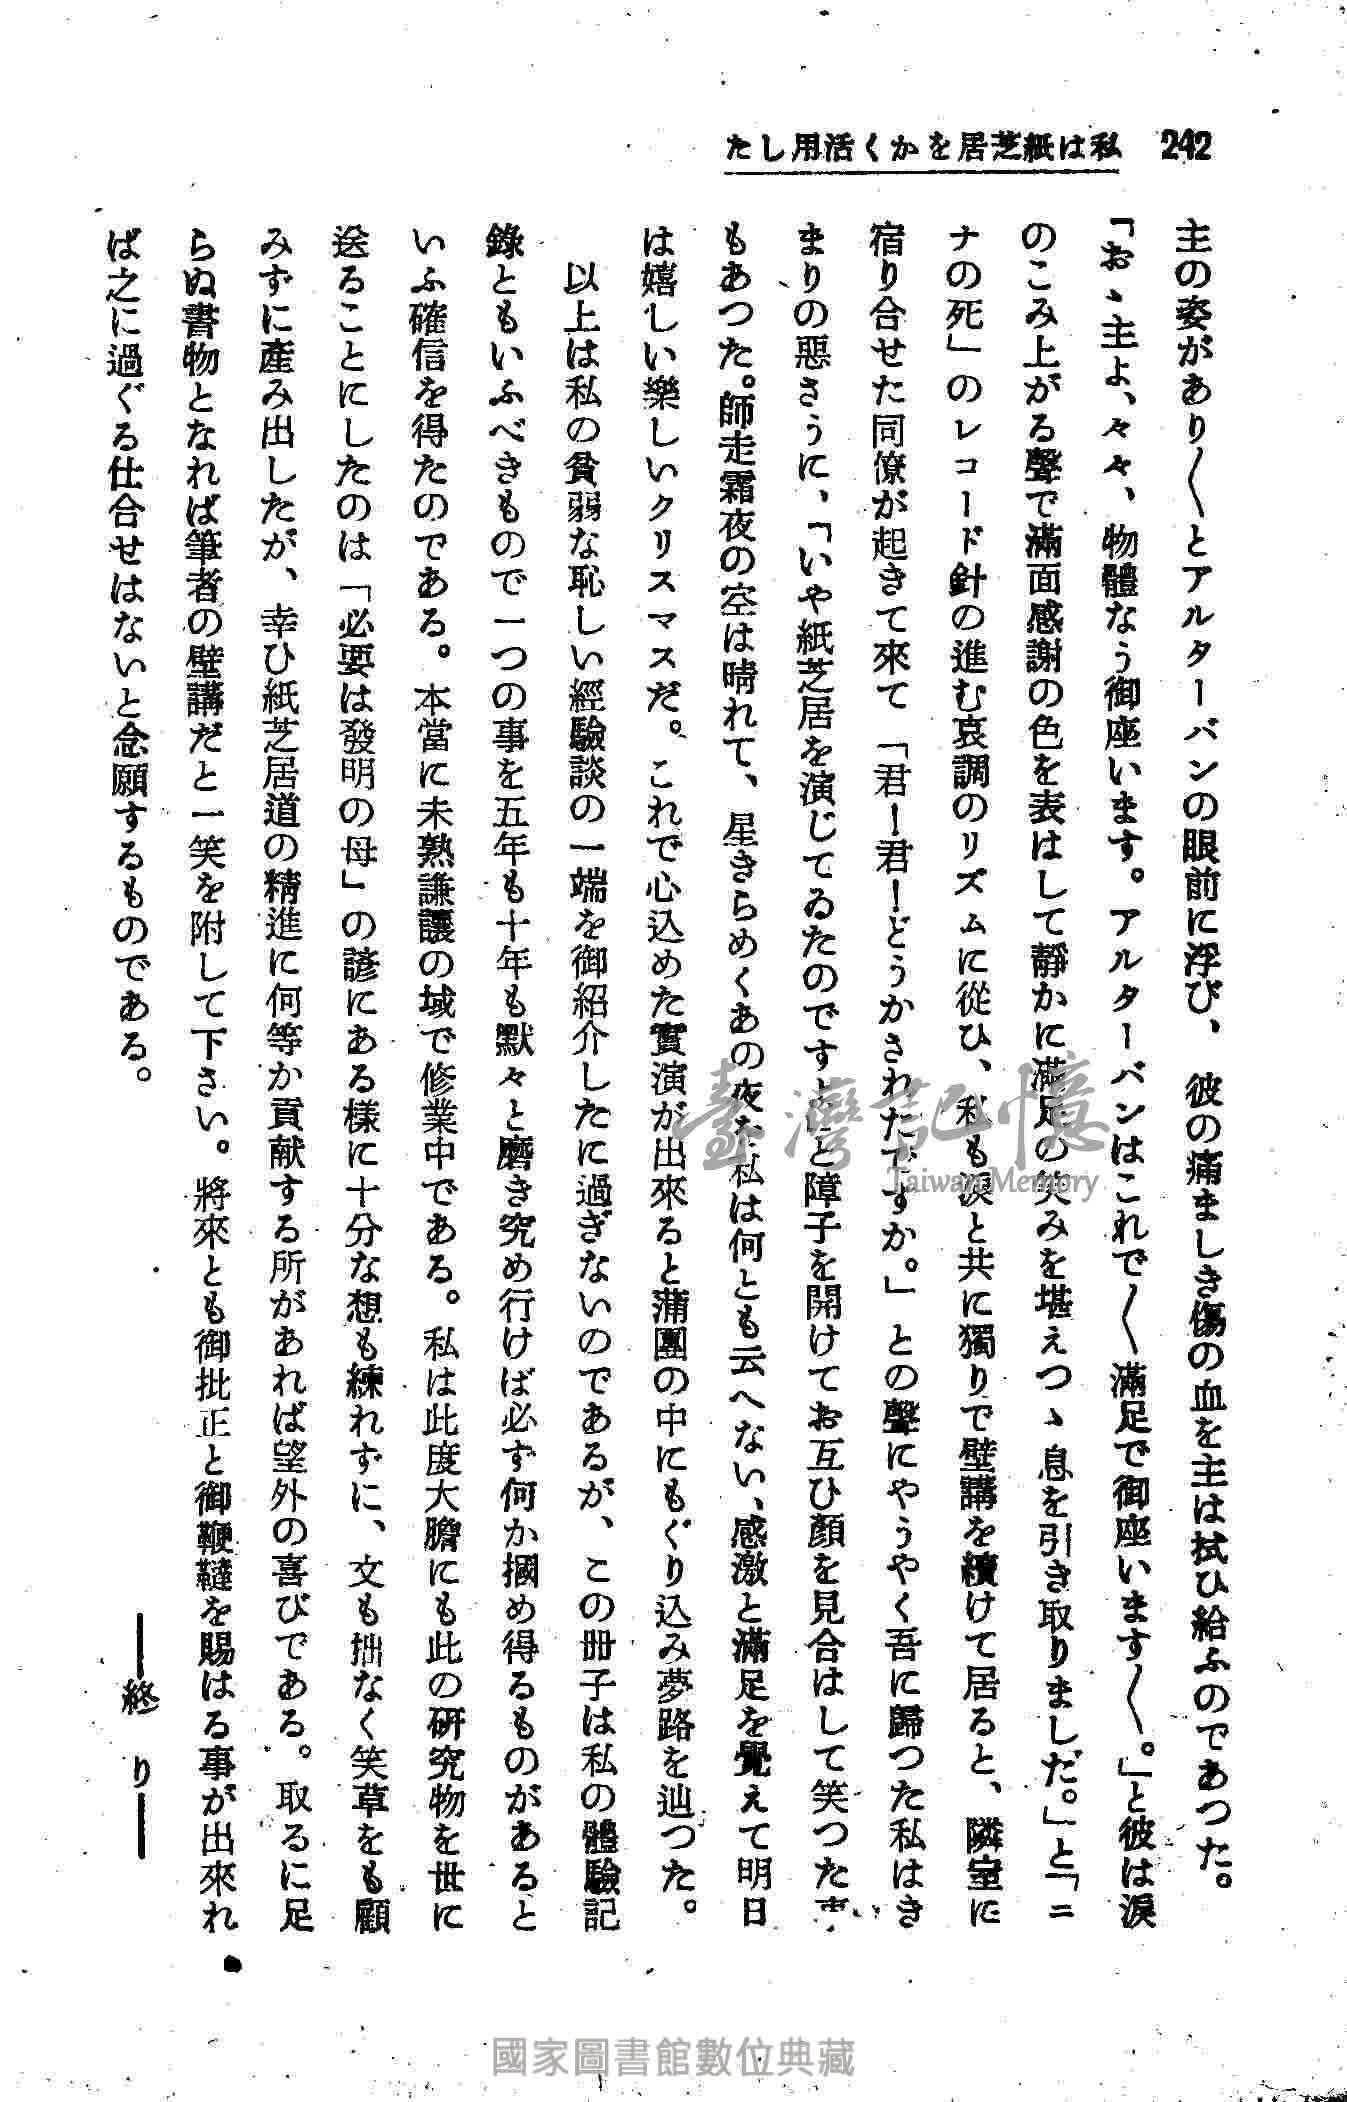 242
たし用活くかを居芝紙は私
主の姿があり〱とアルターバンの眼前に浮び、彼の痛ましき傷の血を主は拭ひ給ふのであつた。
「おゝ主よ、々々、物體なう御座います。アルターバンはこれで〱滿足で御座います〱。」と彼は淚
のこみ上がる聲で滿面感謝の色を表はして靜かに滿足の笑みを堪えつゝ息を引き取りました。」と「ニ
ナの死」のレコード針の進む哀調のリズムに從ひ、私も淚と共に獨りで壁講を續けて居ると、隣室に
宿り合せた同僚が起きて來て「君ー君ーどうかされたですか。」との聲にやうやく吾に歸つた私はき
まりの惡さうに、「いや紙芝居を演じてゐたのですよ」と障子を開けてお互ひ顏を見合はして笑つた事
もあつた。師走霜夜の空は晴れて、星きらめくあの夜を私は何とも云へない、感激と滿足を覺えて明日
は嬉しい樂しいクリスマスだ。これで心込めた實演が出來ると蒲團の中にもぐり込み夢路を辿つた。
以上は私の貧弱な恥しい經驗談の一端を御紹介したに過ぎないのであるが、この册子は私の體驗記
錄ともいふべきもので一つの事を五年も十年も默々と磨き究め行けば必ず何か摑め得るものがあると
いふ確信を得たのである。本當に未熟謙讓の域で修業中である。私は此度大膽にも此の硏究物を世に
送ることにしたのは「必要は發明の母」の諺にある樣に十分な想も練れずに、文も拙なく笑草をも顧
みずに產み出したが、幸ひ紙芝居道の精進に何等か貢献する所があれば望外の喜びである。取るに足
らぬ書物となれば筆者の壁講だと一笑を附して下さい。將來とも御批正と御鞭韃を賜はる事が出來れ
ば之に過ぐる仕合せはないと念願するものである。
——終り——
臺灣記憶
Taiwan Memory
國家圖書館數位典藏